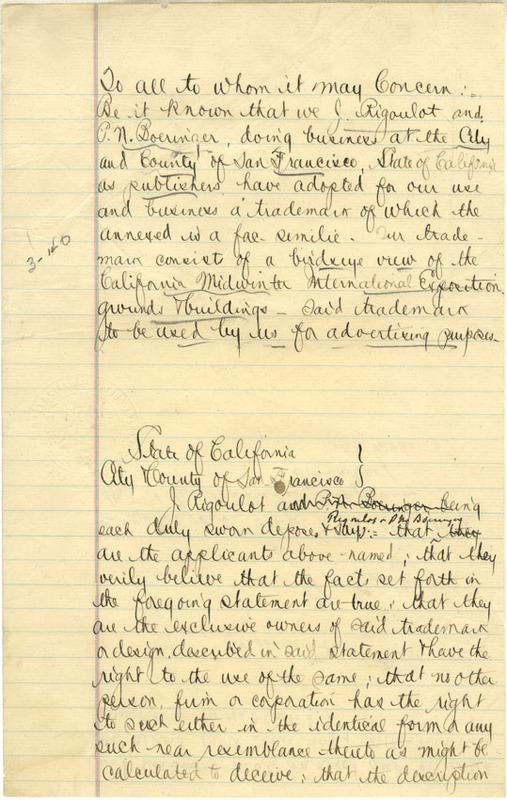 To all to whom it may Concern:
Be it known that we J. Rigoulot and
P. N. Boeringer, doing business at the City
and County of San Francisco, State of California
as publishers have adopted for our use
and business a trademark of which the
annexed is a fac-similie. Our trade-
mark consist of a birdseye view of the
California Midwinter International Exposition
grounds & buildings - said trademark
to be used by us for advertising purposes-
State of California
City County of San Francisco }
J. Rigoulot and P. N. Boeringer being
Boeringer
each duly sworn depose & says:- that they
are the applicants above-named; that they
verily believe that the facts set forth in
the foregoing statement are true; that they
are the exclusive owners of said trademark
or design, described in said statement & have the
right to the use of the same; that no other
person, firm or corporation has the right
to such either in the identical form or any
such near resemblance thereto as might be
calculated to deceive; that the description